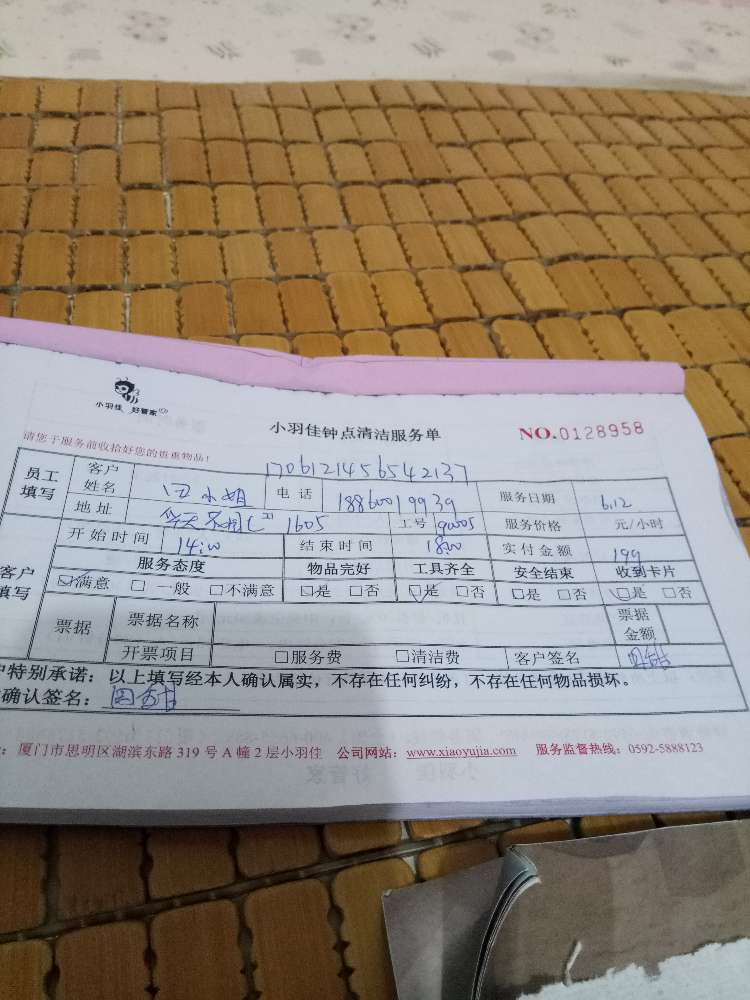 小羽佳 好管家
小羽佳钟点清洁服务单
NO.0128958
请您于服务前收拾好您的贵重物品!
1706121456542137
员工填写 客户姓名 小姐 电话 18860019939 服务日期 6.12
地址 1605 工号 服务价格 元/小时
客户填写 开始时间 14:00 结束时间 18:00 实付金额 199
服务态度 物品完好 工具齐全 安全结束 收到卡片
☑满意 □一般 □不满意 ☑是 □否 ☑是 □否 ☑是 □否 ☑是 □否
票据 票据名称 票据金额
开票项目 □服务费 □清洁费 客户签名
户特别承诺:以上填写经本人确认属实,不存在任何纠纷,不存在任何物品损坏。
确认签名:
厦门市思明区湖滨东路 319 号 A 幢 2 层小羽佳 公司网站:www.xiaoyujia.com 服务监督热线:0592-5888123